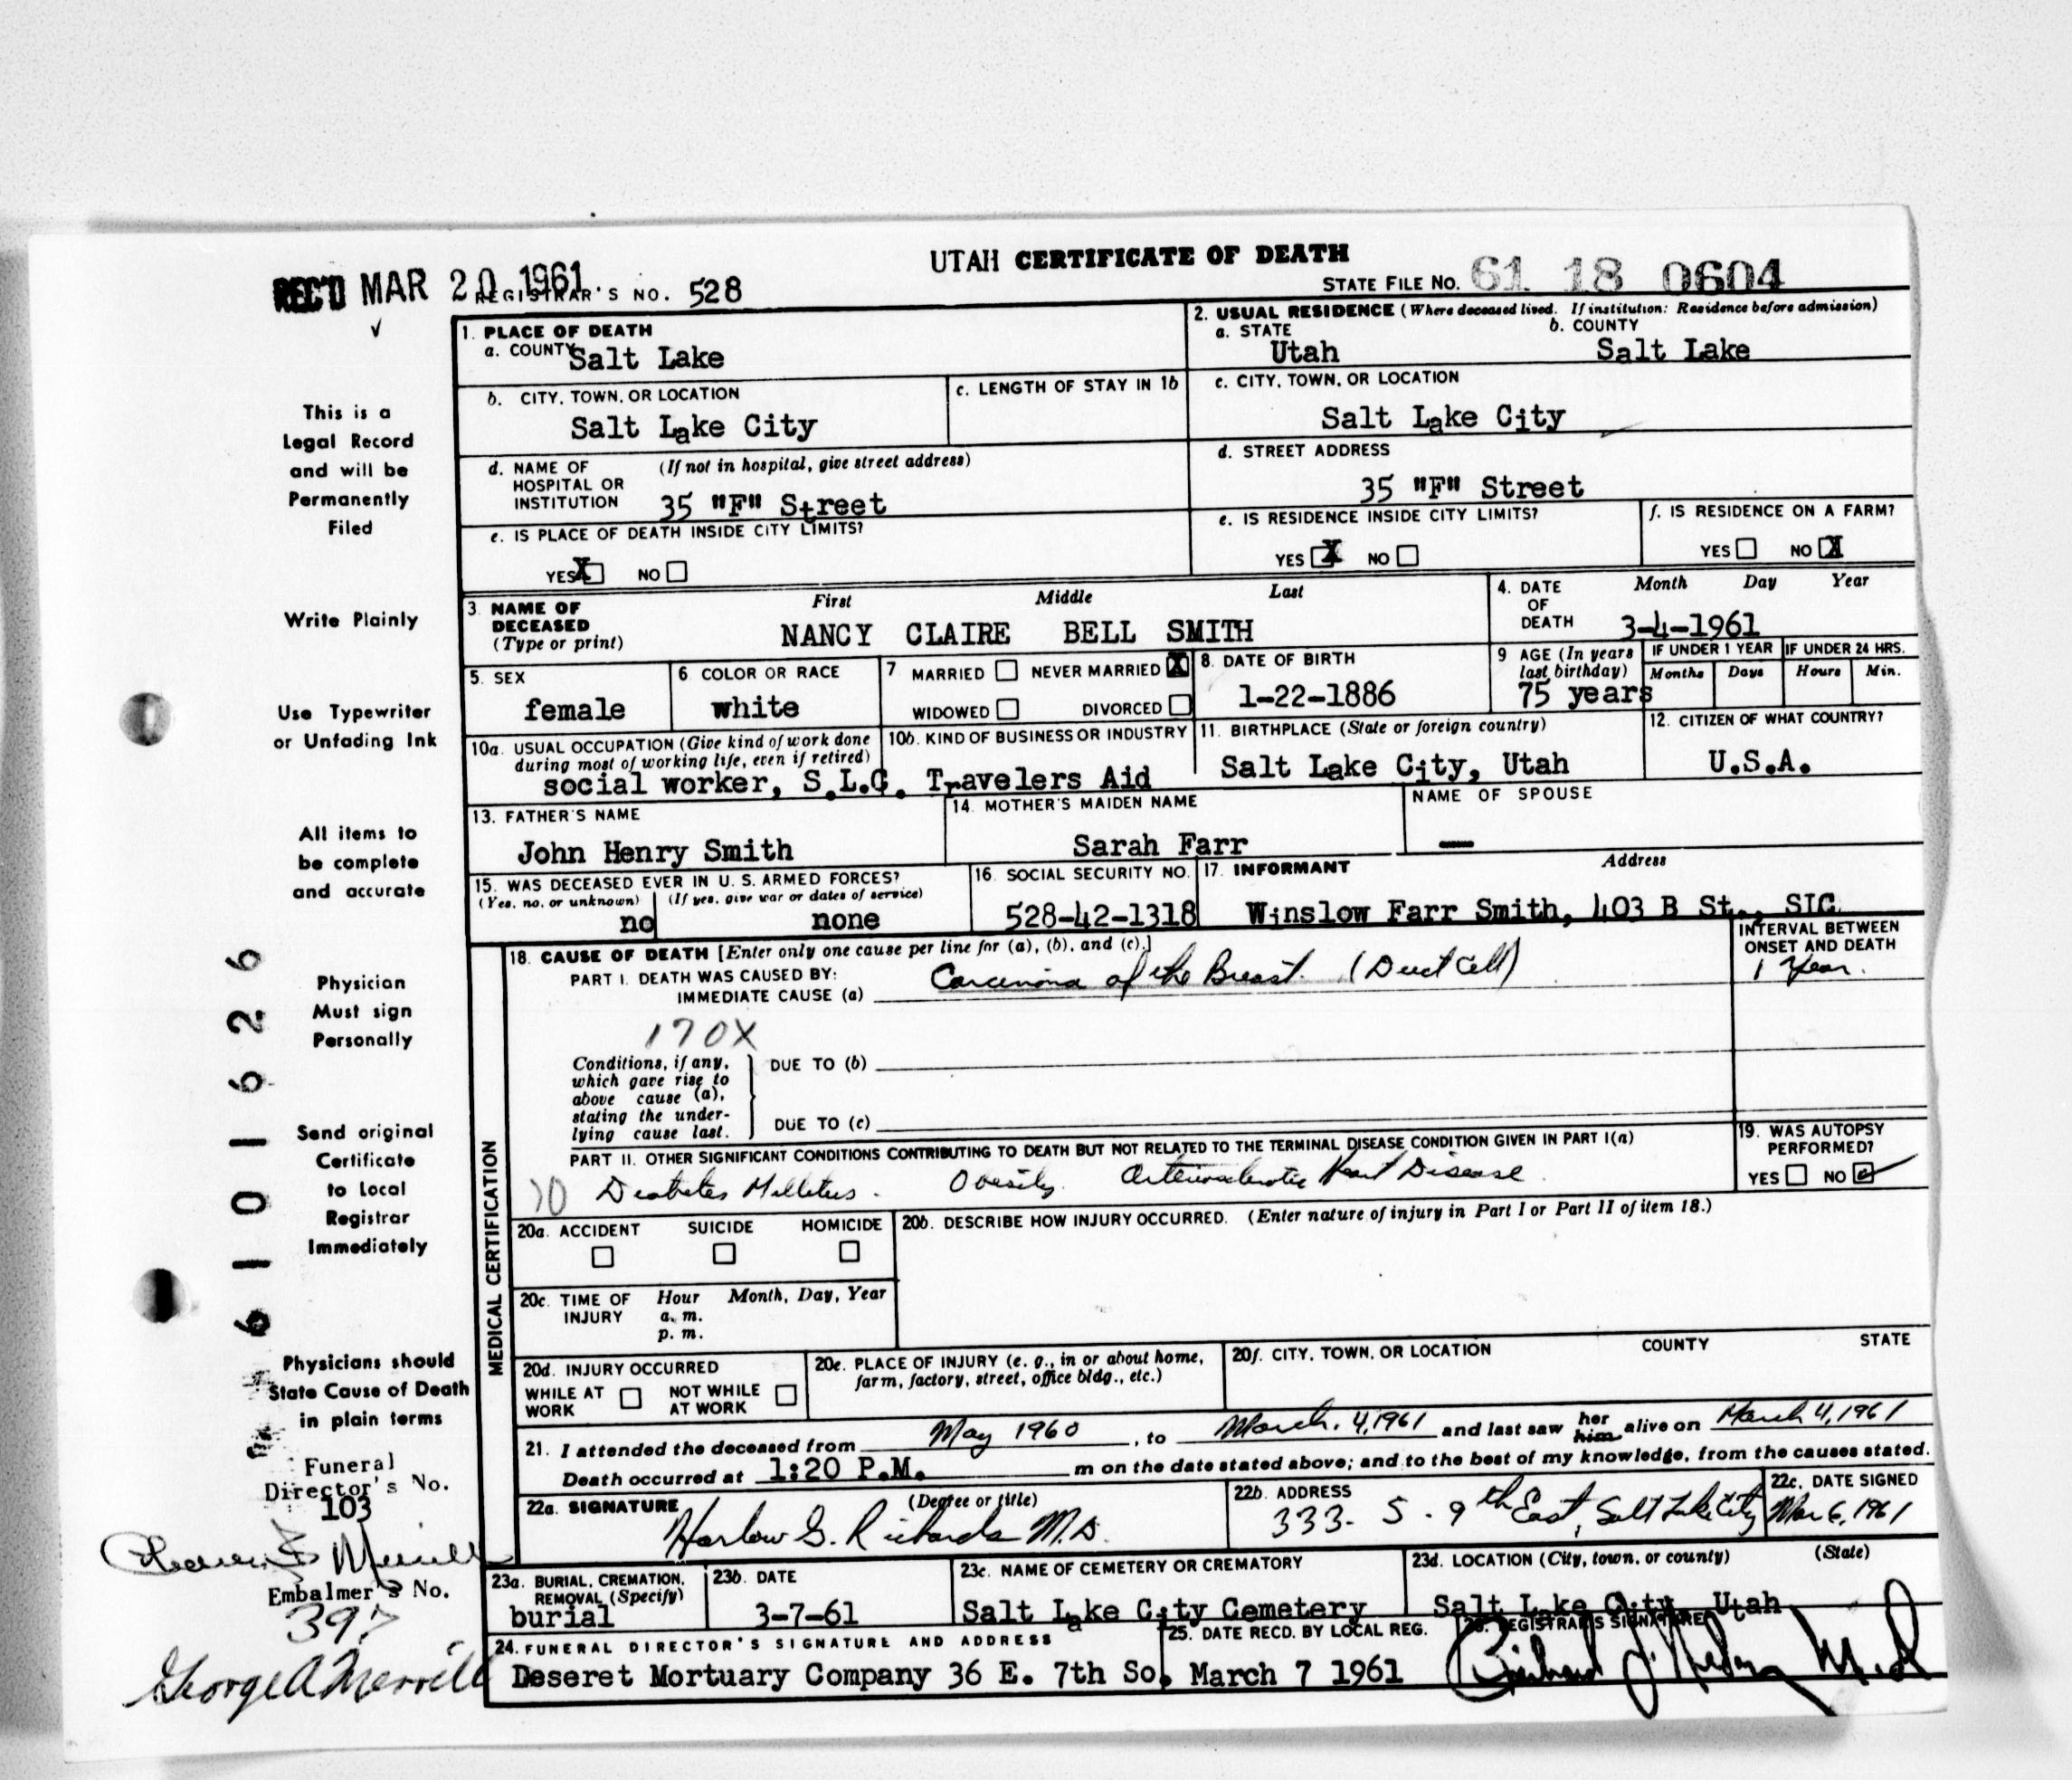 UTAH CERTIFICATE OF DEATH
REC'D MAR 20 1961
REGISTRAR'S NO. 528
STATE FILE NO. 61 18 0604
1. PLACE OF DEATH
a. COUNTY Salt Lake
2. USUAL RESIDENCE (Where deceased lived. If institution: Residence before admission)
a. STATE Utah
b. COUNTY Salt Lake
b. CITY, TOWN, OR LOCATION
Salt Lake City
c. LENGTH OF STAY IN 1b
c. CITY, TOWN, OR LOCATION
Salt Lake City
d. NAME OF HOSPITAL OR INSTITUTION (If not in hospital, give street address)
35 "F" Street
d. STREET ADDRESS
35 "F" Street
e. IS PLACE OF DEATH INSIDE CITY LIMITS?
YES X NO
e. IS RESIDENCE INSIDE CITY LIMITS?
YES X NO
f. IS RESIDENCE ON A FARM?
YES NO X
3. NAME OF DECEASED (Type or print)
First Middle Last
NANCY CLAIRE BELL SMITH
4. DATE OF DEATH Month Day Year
3-4-1961
5. SEX
female
6 COLOR OR RACE
white
7 MARRIED NEVER MARRIED X
WIDOWED DIVORCED
8. DATE OF BIRTH
1-22-1886
9 AGE (In years last birthday)
75 years
IF UNDER 1 YEAR
Months Days
IF UNDER 24 HRS.
Hours Min.
10a. USUAL OCCUPATION (Give kind of work done during most of working life, even if retired)
10b. KIND OF BUSINESS OR INDUSTRY
social worker, S.L.C. Travelers Aid
11. BIRTHPLACE (State or foreign country)
Salt Lake City, Utah
12. CITIZEN OF WHAT COUNTRY?
U.S.A.
13. FATHER'S NAME
John Henry Smith
14. MOTHER'S MAIDEN NAME
Sarah Farr
NAME OF SPOUSE
—
15. WAS DECEASED EVER IN U. S. ARMED FORCES?
(Yes, no, or unknown) (If yes, give war or dates of service)
no none
16. SOCIAL SECURITY NO.
528-42-1318
17. INFORMANT Address
Winslow Farr Smith, 403 B St., SlC
18. CAUSE OF DEATH [Enter only one cause per line for (a), (b), and (c).]
INTERVAL BETWEEN ONSET AND DEATH
PART I. DEATH WAS CAUSED BY:
IMMEDIATE CAUSE (a) Carcinoma of the Breast. (Duct Cell)
1 Year.
170X
Conditions, if any, which gave rise to above cause (a), stating the underlying cause last.
DUE TO (b)
DUE TO (c)
PART II. OTHER SIGNIFICANT CONDITIONS CONTRIBUTING TO DEATH BUT NOT RELATED TO THE TERMINAL DISEASE CONDITION GIVEN IN PART I(a)
Diabetes Mellitus. Obesity Arteriosclerotic Heart Disease
19. WAS AUTOPSY PERFORMED?
YES NO
MEDICAL CERTIFICATION
20a. ACCIDENT SUICIDE HOMICIDE
20b. DESCRIBE HOW INJURY OCCURRED. (Enter nature of injury in Part I or Part II of item 18.)
20c. TIME OF INJURY Hour Month, Day, Year
a. m.
p. m.
20d. INJURY OCCURRED
WHILE AT WORK NOT WHILE AT WORK
20e. PLACE OF INJURY (e. g., in or about home, farm, factory, street, office bldg., etc.)
20f. CITY, TOWN, OR LOCATION COUNTY STATE
21. I attended the deceased from May 1960, to March. 4, 1961 and last saw her him alive on March 4, 1961
Death occurred at 1:20 P.M. m on the date stated above; and to the best of my knowledge, from the causes stated.
22a. SIGNATURE (Degree or title)
Harlow G. Richards M.D.
22b. ADDRESS
333- S. 9th East, Salt Lake City
22c. DATE SIGNED
Mar 6, 1961
23a. BURIAL, CREMATION, REMOVAL (Specify)
burial
23b. DATE
3-7-61
23c. NAME OF CEMETERY OR CREMATORY
Salt Lake City Cemetery
23d. LOCATION (City, town, or county) (State)
Salt Lake City, Utah
24. FUNERAL DIRECTOR'S SIGNATURE AND ADDRESS
Deseret Mortuary Company 36 E. 7th So.
25. DATE RECD. BY LOCAL REG.
March 7 1961
REGISTRAR'S SIGNATURE
This is a
Legal Record
and will be
Permanently
Filed
Write Plainly
Use Typewriter
or Unfading Ink
All items to
be complete
and accurate
Physician
Must sign
Personally
Send original
Certificate
to Local
Registrar
Immediately
Physicians should
State Cause of Death
in plain terms
Funeral
Director's No.
103
Merrill
Embalmer's No.
397
George A Merrill
6101626